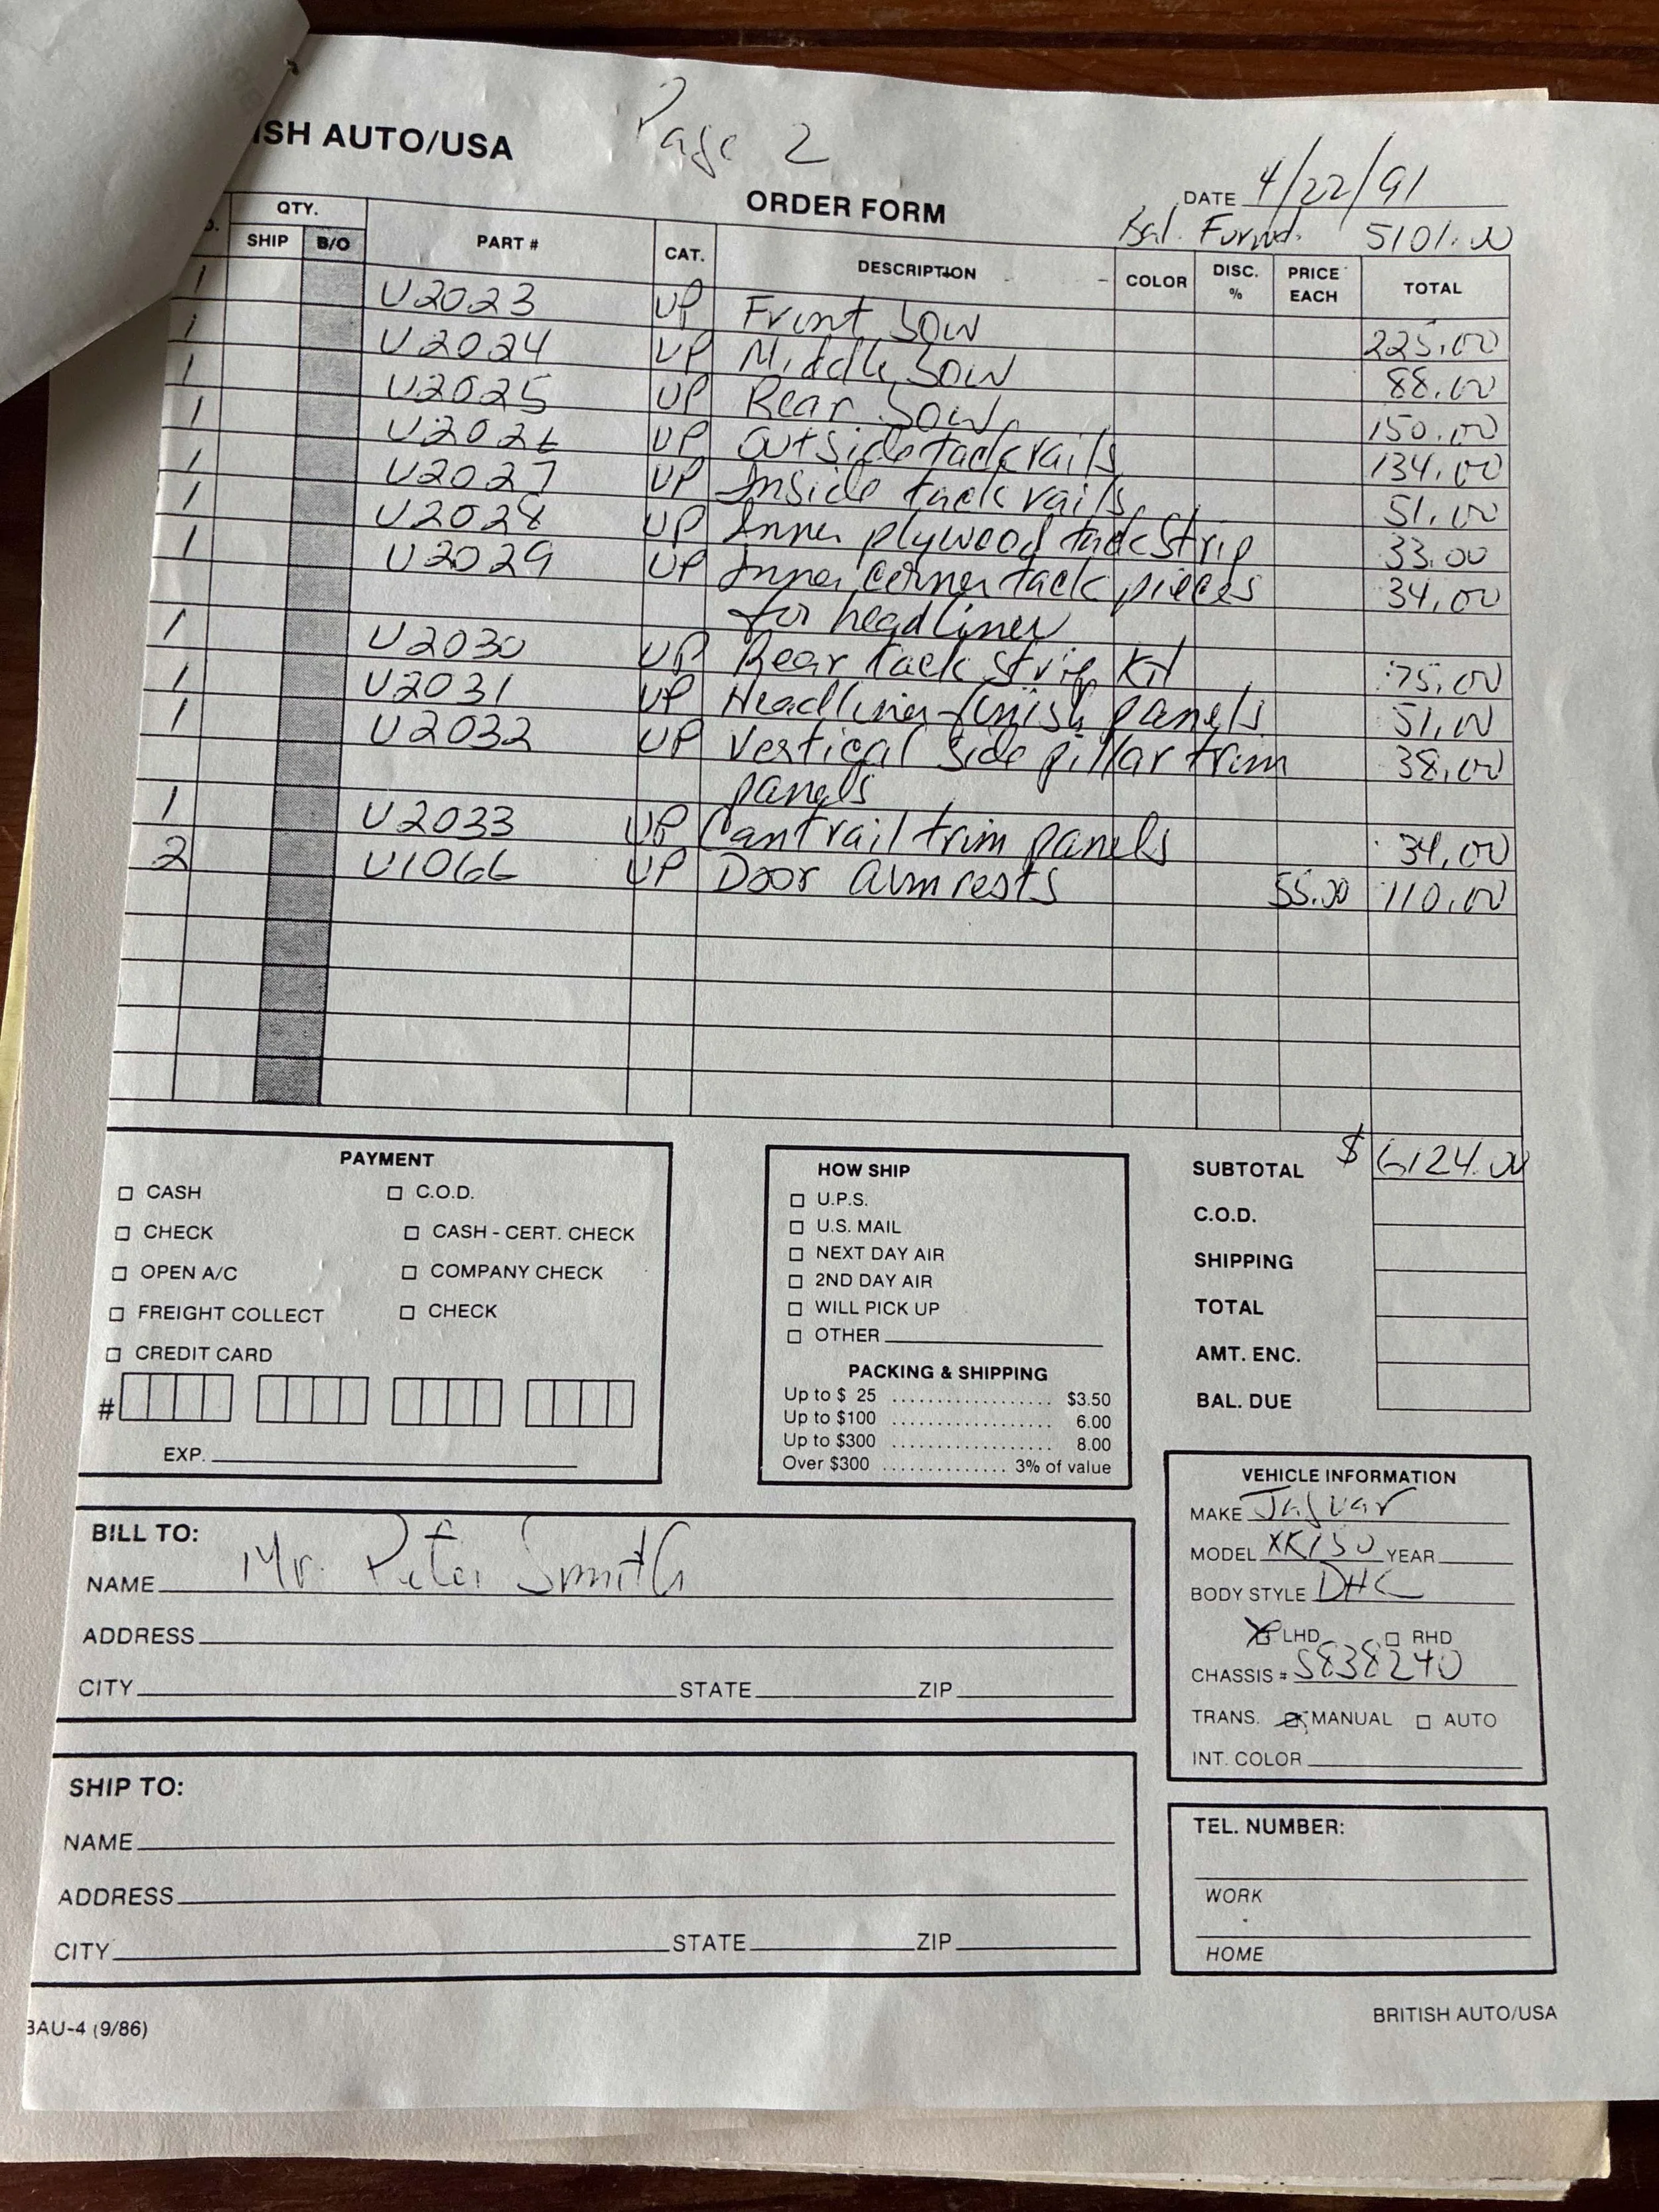 ISH AUTO/USA
Page 2
ORDER FORM
DATE 4/22/91
Bal. Forwd. 5101.00
QTY.
SHIP B/O PART # CAT. DESCRIPTION COLOR DISC. % PRICE EACH TOTAL
1 U2023 UP Front bow 225.00
1 U2024 UP Middle bow 88.00
1 U2025 UP Rear bow 150.00
1 U2026 UP outside tack rails 134.00
1 U2027 UP Inside tack rails 51.00
1 U2028 UP Inner plywood tack strip 33.00
1 U2029 UP Inner corner tack pieces 34.00
for headliner
1 U2030 UP Rear tack strip kit 75.00
1 U2031 UP Headliner finish panels 51.00
1 U2032 UP Vertical side pillar trim 38.00
panels
1 U2033 UP Cantrail trim panels 34.00
2 U1066 UP Door armrests 55.00 110.00
SUBTOTAL $ 6124.00
C.O.D.
SHIPPING
TOTAL
AMT. ENC.
BAL. DUE
PAYMENT
CASH C.O.D.
CHECK CASH - CERT. CHECK
OPEN A/C COMPANY CHECK
FREIGHT COLLECT CHECK
CREDIT CARD
#
EXP.
HOW SHIP
U.P.S.
U.S. MAIL
NEXT DAY AIR
2ND DAY AIR
WILL PICK UP
OTHER
PACKING & SHIPPING
Up to $ 25 .................. $3.50
Up to $100 .................. 6.00
Up to $300 .................. 8.00
Over $300 .............. 3% of value
BILL TO:
NAME Mr. Peter Smith
ADDRESS
CITY STATE ZIP
VEHICLE INFORMATION
MAKE Jaguar
MODEL XK150 YEAR
BODY STYLE DHC
X LHD RHD
CHASSIS # S838240
TRANS. X MANUAL AUTO
INT. COLOR
SHIP TO:
NAME
ADDRESS
CITY STATE ZIP
TEL. NUMBER:
WORK
HOME
BAU-4 (9/86)
BRITISH AUTO/USA